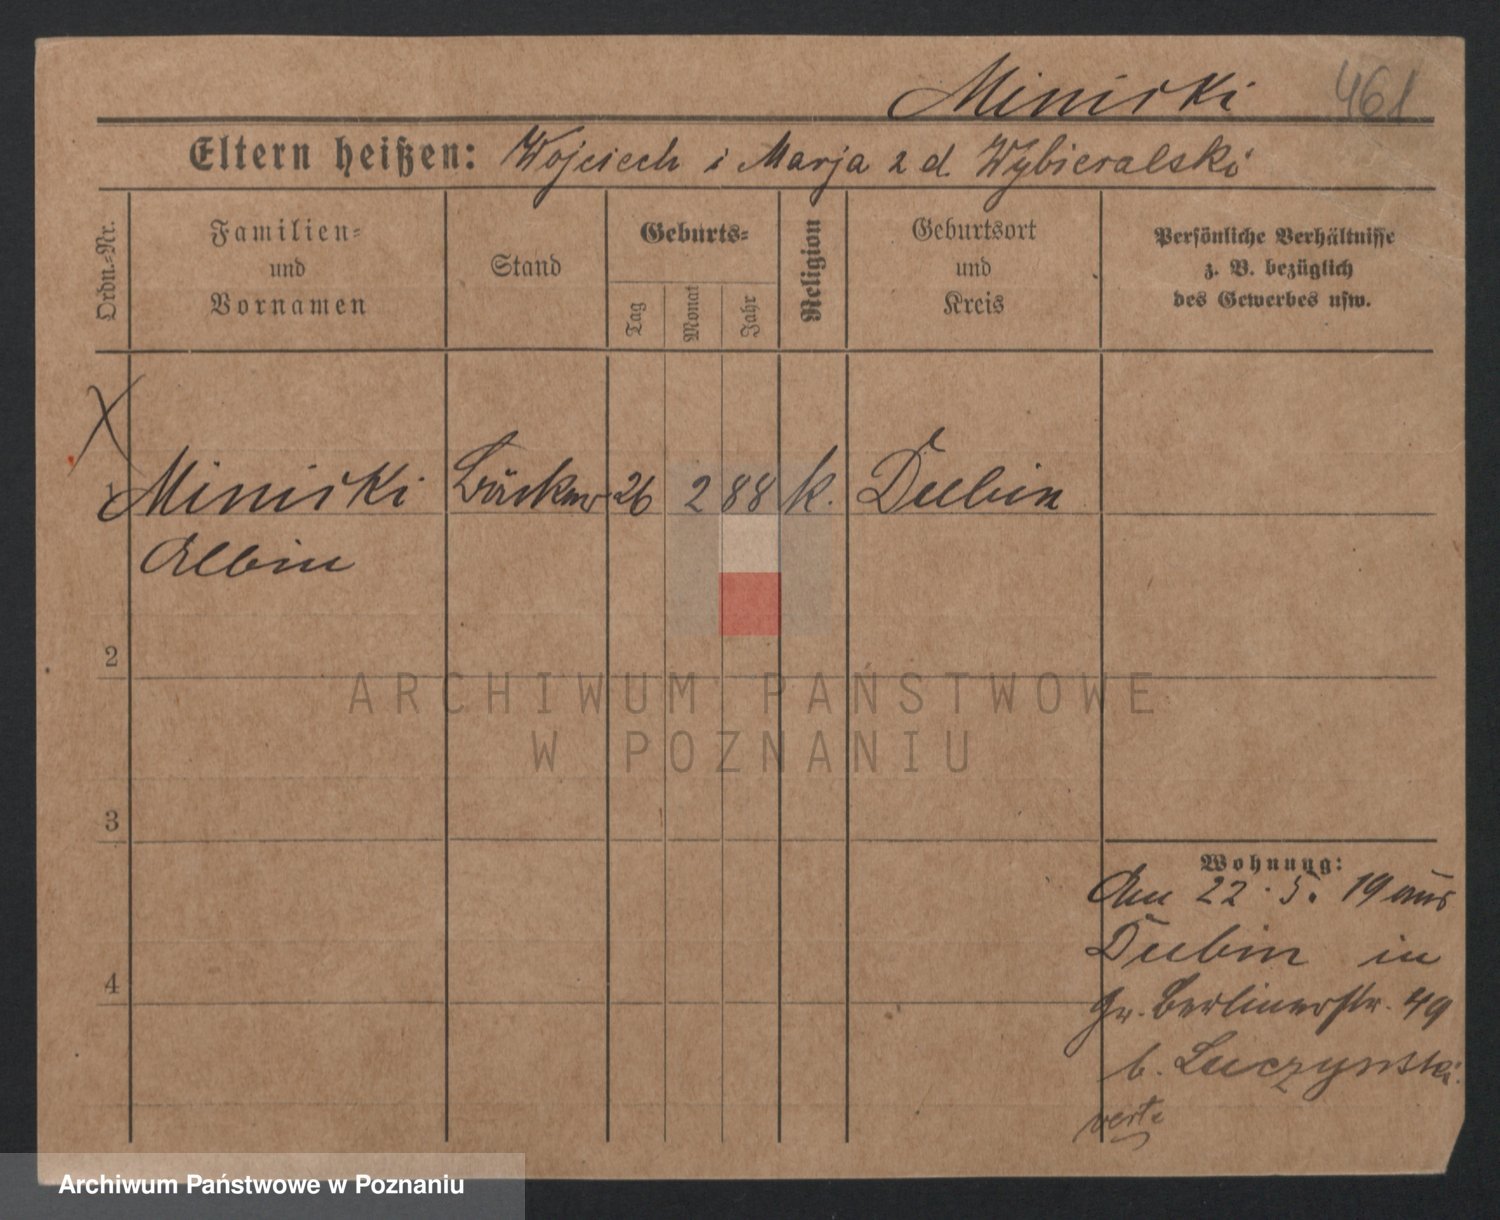 Minirki 461
Eltern heißen: Wojciech i Marja z d. Wybieralski
Ordn.-Nr.
Familien-
und
Vornamen
Stand
Geburts-
Tag
Monat
Jahr
Religion
Geburtsort
und
Kreis
Persönliche Verhältnisse
z. B. bezüglich
des Gewerbes usw.
1 Minirki Bäcker 26 2 88 k. Dubin
Albin
2
ARCHIWUM PAŃSTWOWE
W POZNANIU
3
Wohnung:
Am 22. 5. 19 aus
Dubin in
4
Gr. Berlinerstr. 49
b. Luczynski
verte
Archiwum Państwowe w Poznaniu